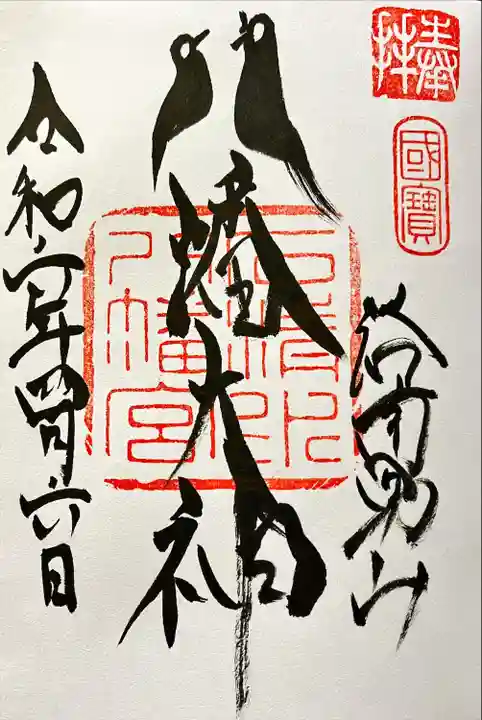 奉拝
國寶
洛南男山
八幡大神
石清水
八幡宮
令和六年四月六日